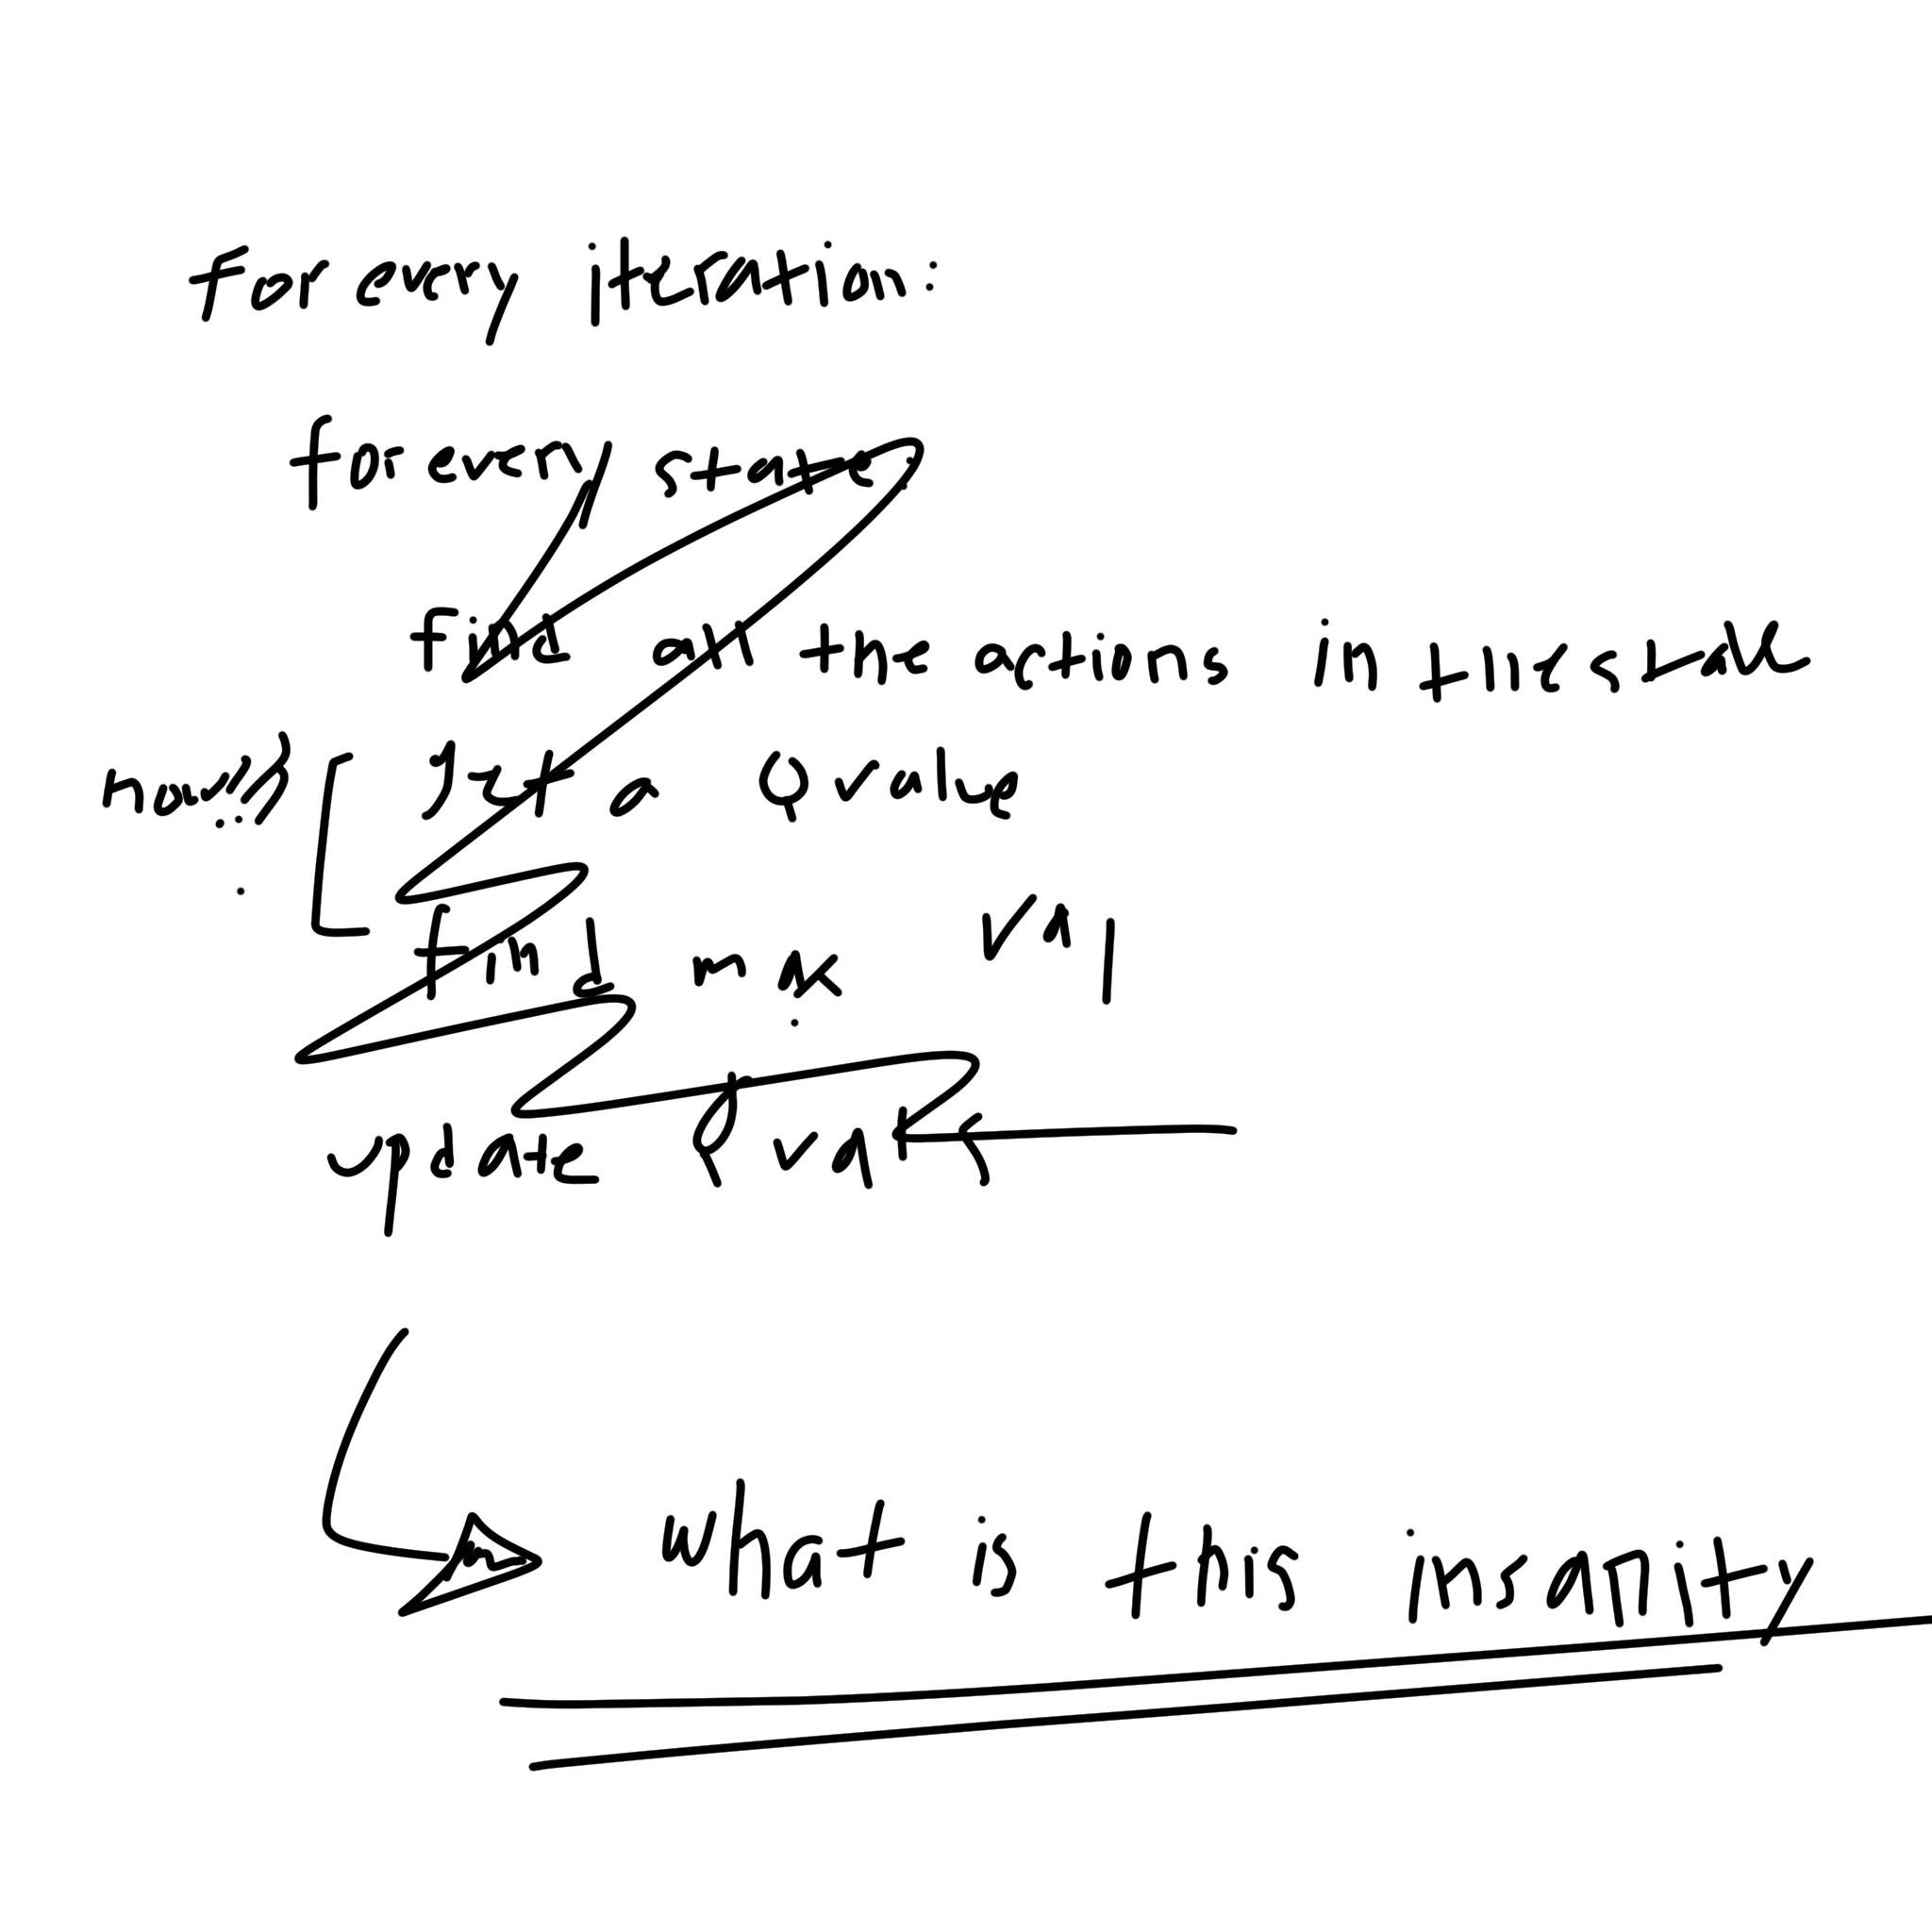 for every iteration:
for every state:
find all the actions in the state
how???
get a Q value
find max val
update Q val
what is this insanity